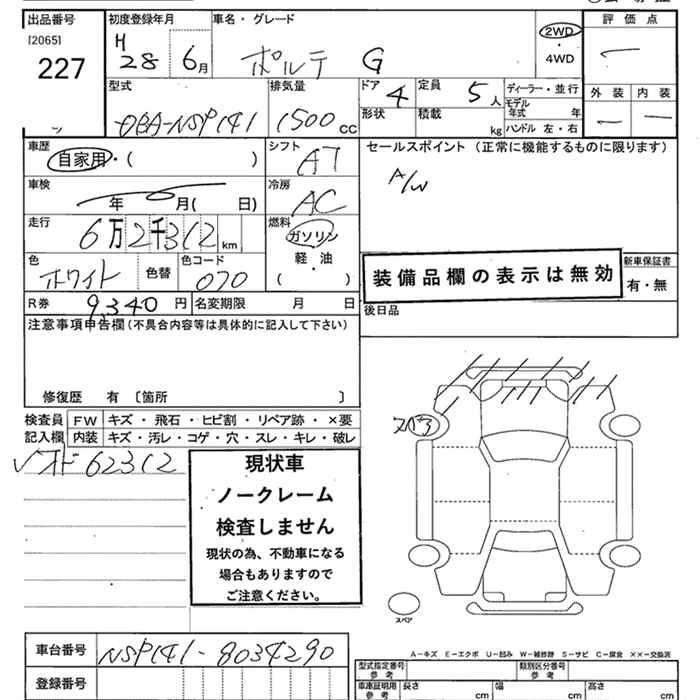 出品番号
[2065]
227
初度登録年月
H
28 6月
車名・グレード
ポルテ G
2WD
・
4WD
評価点
外装 内装
型式
DBA-NSP141
排気量
1500 cc
ドア 4
形状
定員 5人
積載 kg
ディーラー・並行
モデル年式 年
ハンドル 左・右
車歴
自家用・( )
シフト
AT
車検
年 月( 日)
冷房
AC
走行
6万2千312km
燃料
ガソリン
軽・油
( )
色
ホワイト
色替
色コード
070
R券 9,340円
名変期限 月 日
セールスポイント(正常に機能するものに限ります)
A/W
装備品欄の表示は無効
新車保証書
有・無
後日品
注意事項申告欄(不具合内容等は具体的に記入して下さい)
修復歴 有 〔箇所 〕
検査員記入欄
FW キズ・飛石・ヒビ割・リペア跡・×要
内装 キズ・汚レ・コゲ・穴・スレ・キレ・破レ
62312
現状車
ノークレーム
検査しません
現状の為、不動車になる
場合もありますので
ご注意ください。
スペア
A-キズ E-エクボ U-凹み W-補修跡 S-サビ C-腐食 ××-交換済
車台番号 NSP141-8034290
登録番号
型式指定番号 参考
類別区分番号 参考
車庫証明用 参考
長さ cm
幅 cm
高さ cm